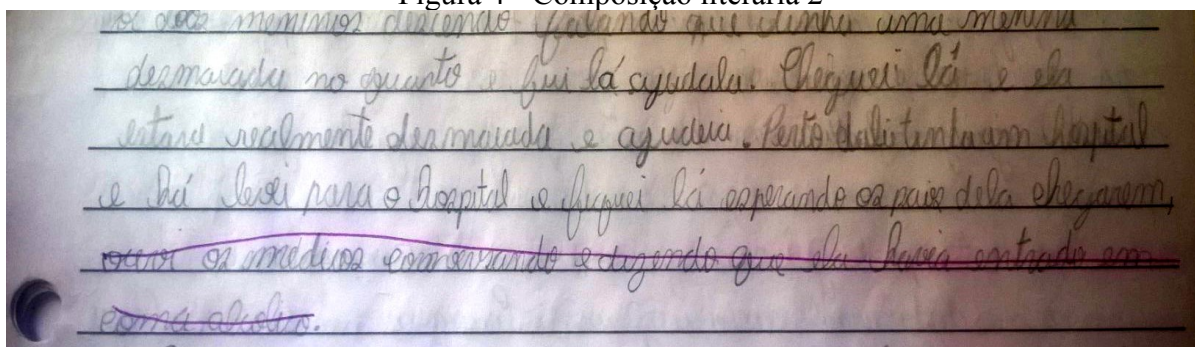 Figura 4 - Composição literária 2
os dois meninos descendo falando que tinha uma menina
desmaiada no quarto e fui lá ajudala. Cheguei lá e ela
estava realmente desmaiada e ajudeia. Perto dali tinha um hospital
e há levei para o hospital e fiquei lá esperando os pais dela chegarem,
os médicos conversando e dizendo que ela havia entrado em
coma alcolico.